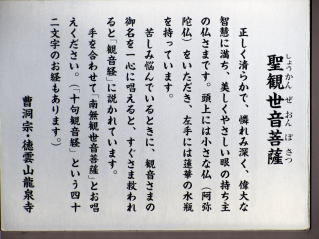 しょうかんぜおんぼさつ
聖観世音菩薩
正しく清らかで、憐れみ深く、偉大な
智慧に満ち、美しくやさしい眼の持ち主
の仏さまです。頭上には小さな仏（阿弥
陀仏）をいただき、左手には蓮華の水瓶
を持っています。
苦しみ悩んでいるときに、観音さまの
御名を一心に唱えると、すぐさま救われ
ると「観音経」に説かれています。
手を合わせて「南無観世音菩薩」とお唱
えください。（「十句観音経」という四十
二文字のお経もあります。）
曹洞宗・徳雲山龍泉寺